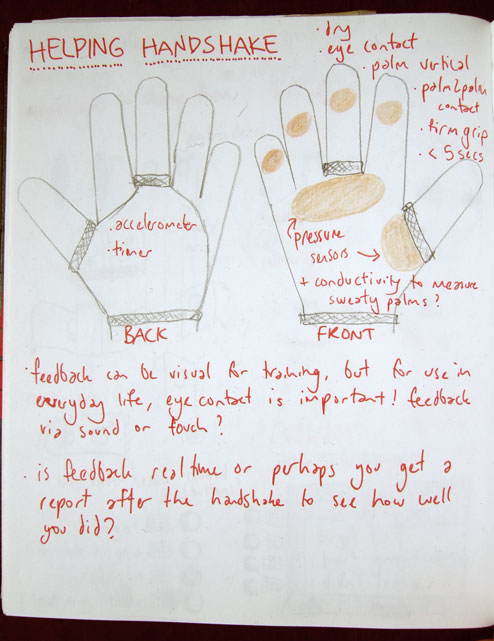 HELPING HANDSHAKE
· dry
· eye contact
· palm vertical
· palm2palm
contact
· firm grip
· < 5 secs
· accelerometer
· timer
pressure
sensors
+ conductivity to measure
sweaty palms?
BACK
FRONT
· feedback can be visual for training, but for use in
everyday life, eye contact is important! feedback
via sound or touch?
· is feedback realtime or perhaps you get a
report after the handshake to see how well
you did?